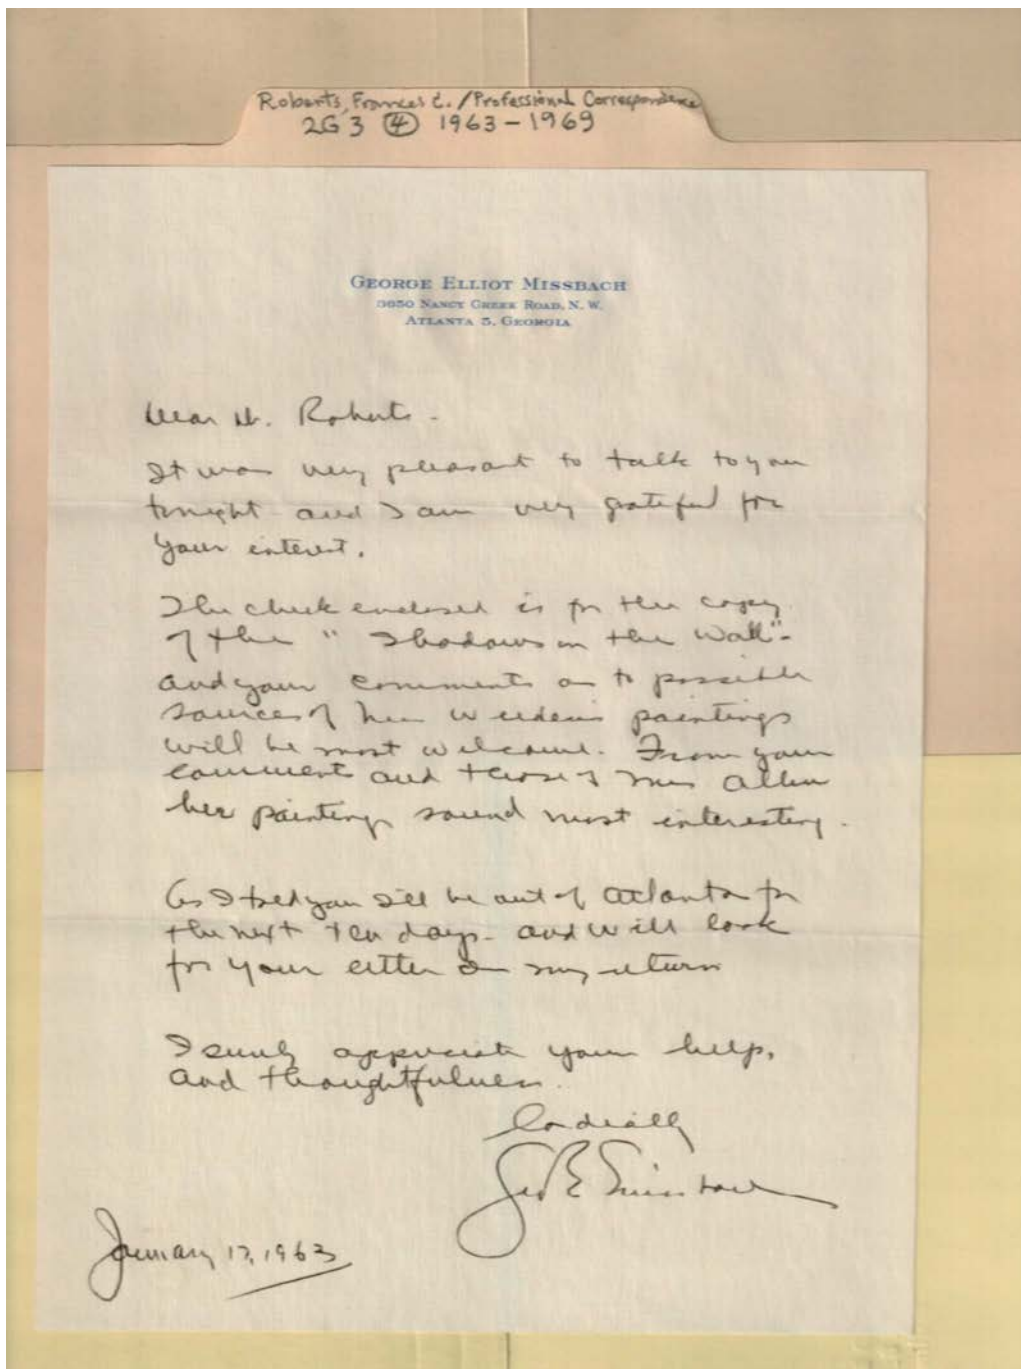 Roberts, Frances C. / Professional Correspondence
2G3 (4) 1963-1969
GEORGE ELLIOT MISSBACH
3650 NANCY CREEK ROAD, N. W.
ATLANTA 5, GEORGIA
Dear Dr. Roberts -
It was very pleasant to talk to you
tonight and I am very grateful for
your interest.
The check enclosed is for the copy
of the "Shadows on the Wall" -
and your comments as to possible
sources of Miss Weeden's paintings
will be most welcome. From your
comments and those of Miss Allen
her paintings sound most interesting.
As I told you I'll be out of Atlanta for
the next ten days - and will look
for your letter on my return
I surely appreciate your help,
and thoughtfulness.
Cordially
Geo E Missbach
January 17, 1963